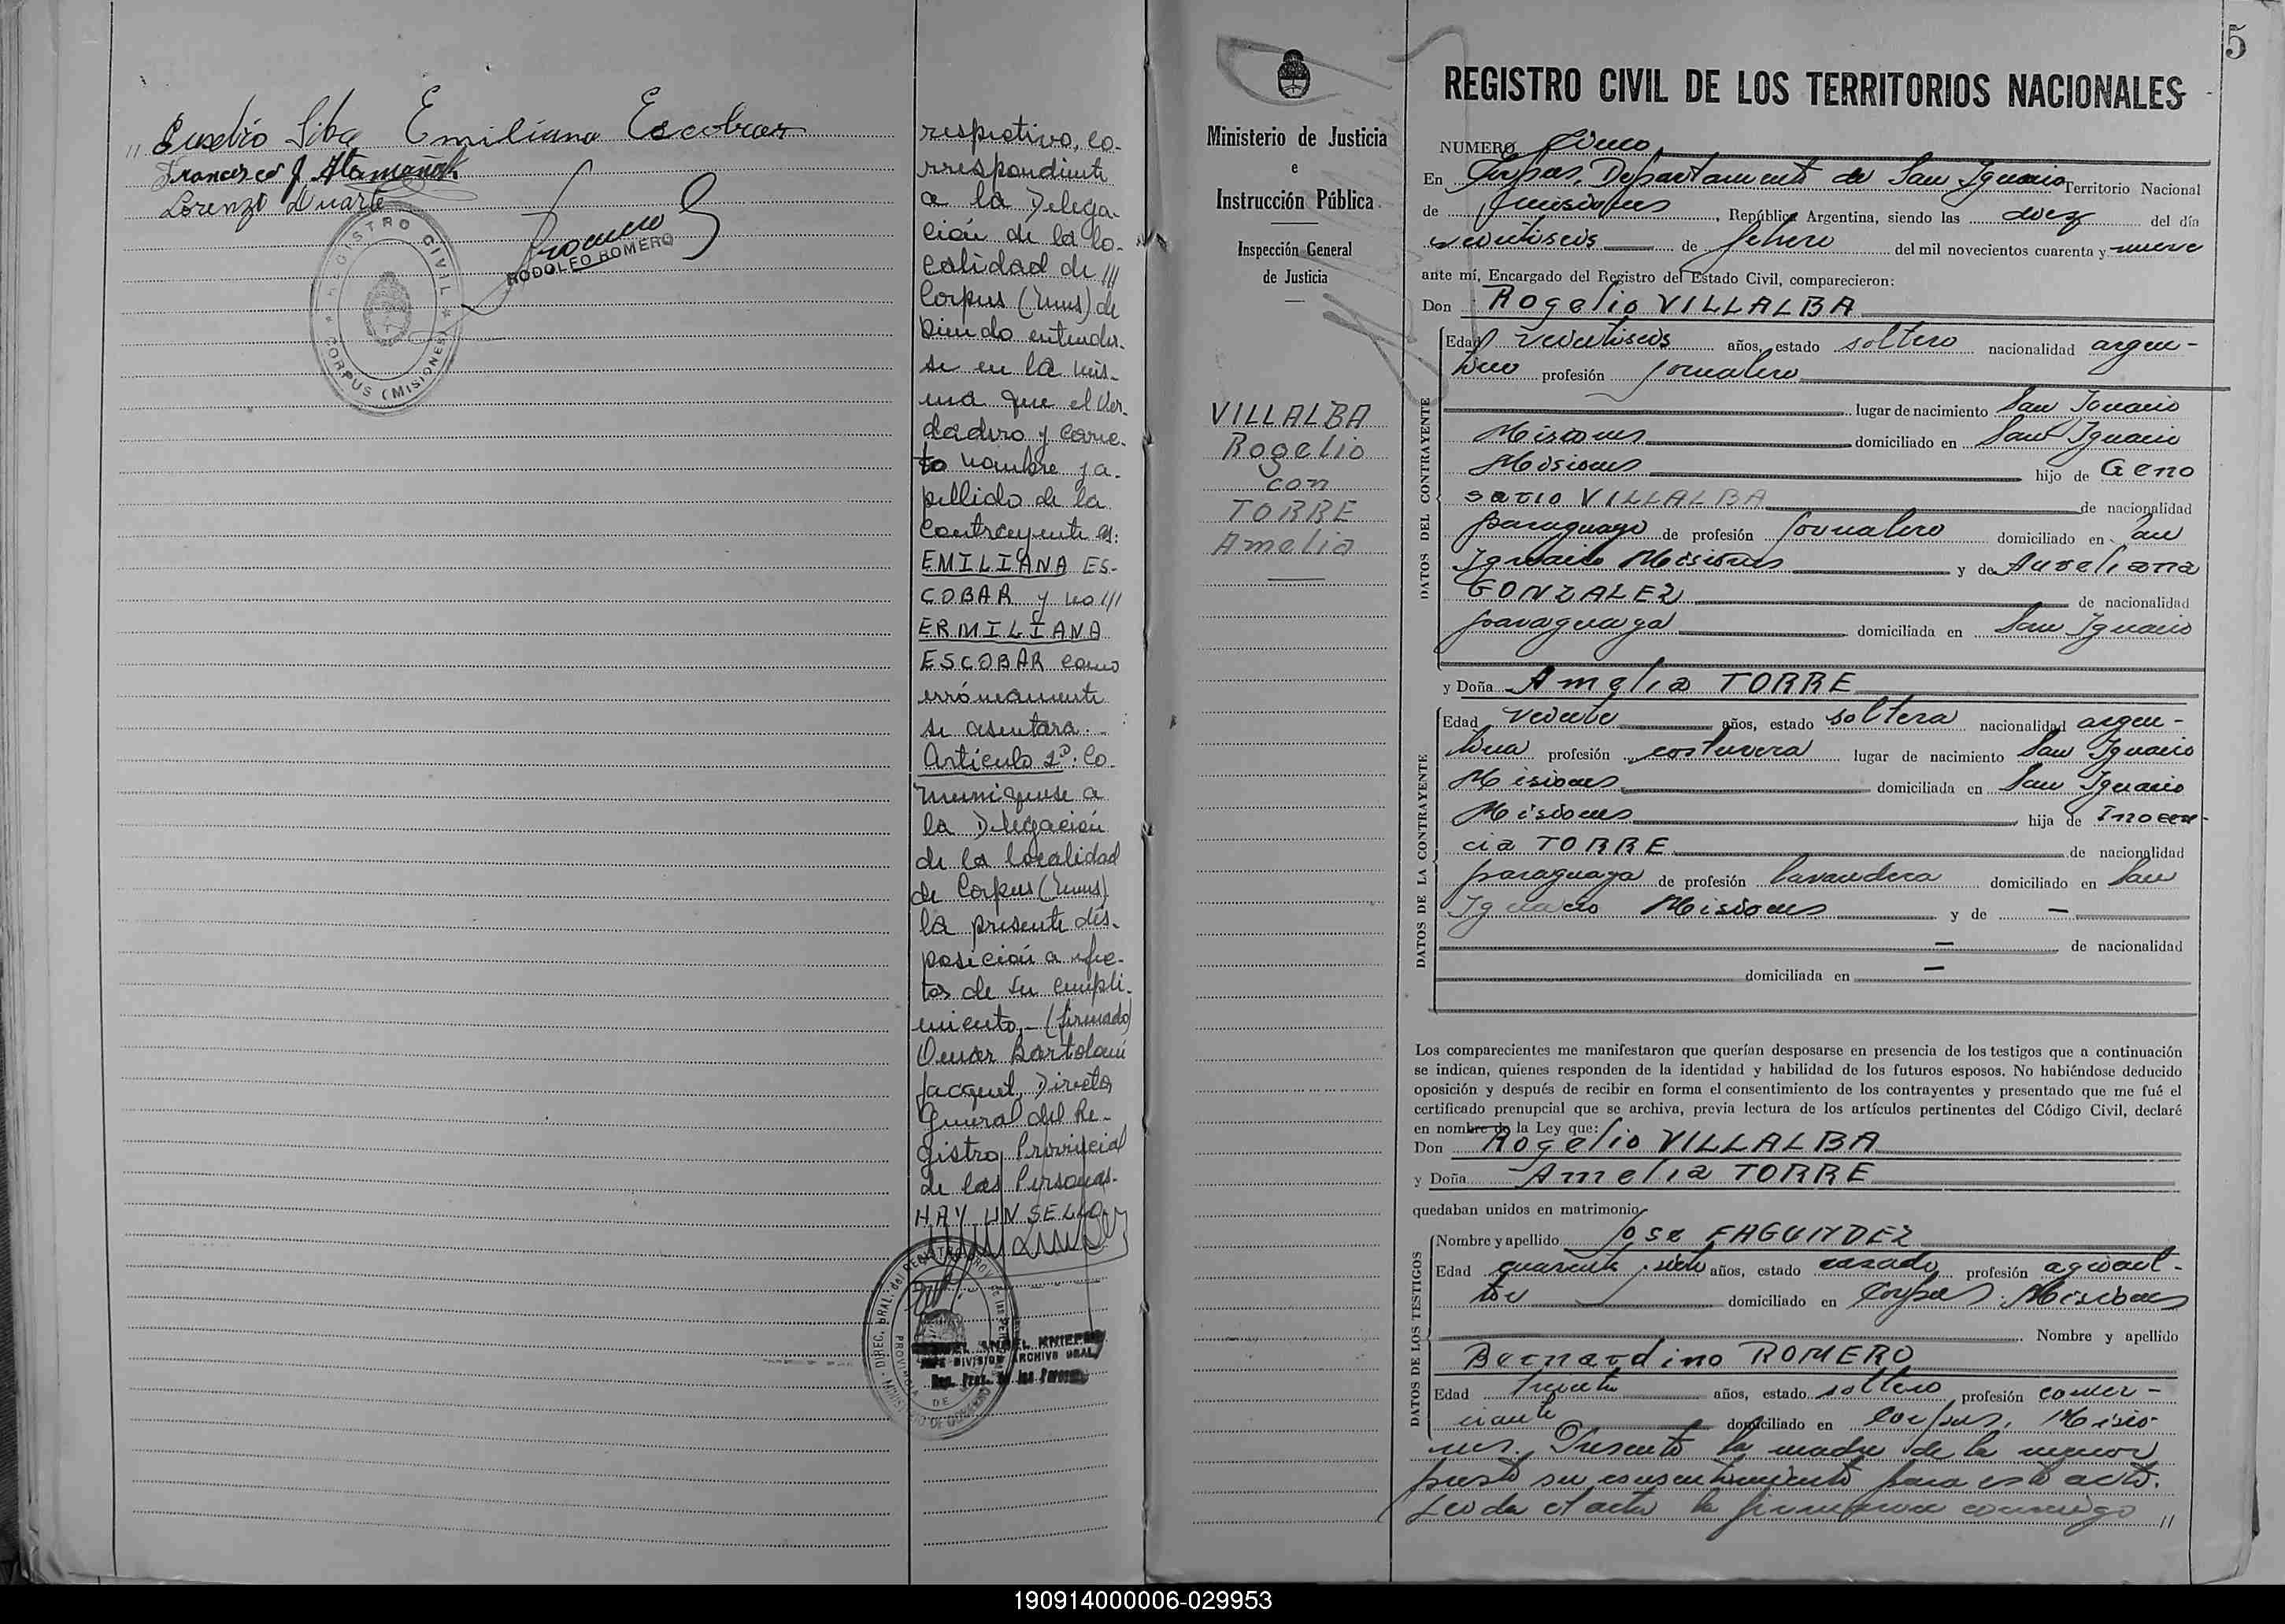 " Eusebio Silva Emiliana Escobar
Francisco J.
Lorenzo Duarte
REGISTRO CIVIL
CORPUS (MISIONES)
RODOLFO ROMERO
respectivo, co-
rrespondiente
a la Delega-
ción de la lo-
calidad de ///
Corpus (Mnes) de
biendo entender-
se en la mis-
ma que el ver-
dadero y correc-
to nombre y a-
pellido de la
contrayente es:
EMILIANA ES-
COBAR y no ///
ERMILIANA
ESCOBAR como
erróneamente
se asentara.-
Artículo 2º: Co-
muníquese a
la Delegación
de la localidad
de Corpus (Mnes)
la presente dis-
posición a efec-
tos de su cumpli-
miento.- (firmado)
Omar Bartolomé
Jacquet, Director
General del Re-
gistro Provincial
de las Personas.-
HAY UN SELLO
JEFE DIVISION ARCHIVO GRAL
Reg. Prov. de las Personas
5
Ministerio de Justicia
e
Instrucción Pública
Inspección General
de Justicia
VILLALBA
Rogelio
con
TORRE
Amelia
REGISTRO CIVIL DE LOS TERRITORIOS NACIONALES
NUMERO Cinco
En Corpus, Departamento de San Ignacio Territorio Nacional
de Misiones, República Argentina, siendo las diez del día
veintiseis de febrero del mil novecientos cuarenta y nueve
ante mí, Encargado del Registro del Estado Civil, comparecieron:
Don Rogelio VILLALBA
DATOS DEL CONTRAYENTE
Edad veintiseis años, estado soltero nacionalidad argen-
tino profesión jornalero
lugar de nacimiento San Ignacio
Misiones domiciliado en San Ignacio
Misiones hijo de Geno
sario VILLALBA de nacionalidad
paraguayo de profesión jornalero domiciliado en San
Ignacio Misiones y de Aureliana
GONZALEZ de nacionalidad
paraguaya domiciliada en San Ignacio
y Doña Amelia TORRE
DATOS DE LA CONTRAYENTE
Edad veinte años, estado soltera nacionalidad argen-
tina profesión costurera lugar de nacimiento San Ignacio
Misiones domiciliada en San Ignacio
Misiones hija de Inocen-
cia TORRE de nacionalidad
paraguaya de profesión lavandera domiciliado en San
Ignacio Misiones y de —
— de nacionalidad
domiciliada en —
Los comparecientes me manifestaron que querían desposarse en presencia de los testigos que a continuación
se indican, quienes responden de la identidad y habilidad de los futuros esposos. No habiéndose deducido
oposición y después de recibir en forma el consentimiento de los contrayentes y presentado que me fué el
certificado prenupcial que se archiva, previa lectura de los artículos pertinentes del Código Civil, declaré
en nombre de la Ley que:
Don Rogelio VILLALBA
y Doña Amelia TORRE
quedaban unidos en matrimonio
DATOS DE LOS TESTIGOS
Nombre y apellido José FAGUNDEZ
Edad cuarenta y siete años, estado casado profesión agricul-
tor domiciliado en Corpus, Misiones
Nombre y apellido
Bernardino ROMERO
Edad treinta años, estado soltero profesión comer-
ciante domiciliado en Corpus, Misio-
nes. Presente la madre de la menor
prestó su consentimiento para este acto.
Leída el acta la firmaron conmigo //
190914000006-029953